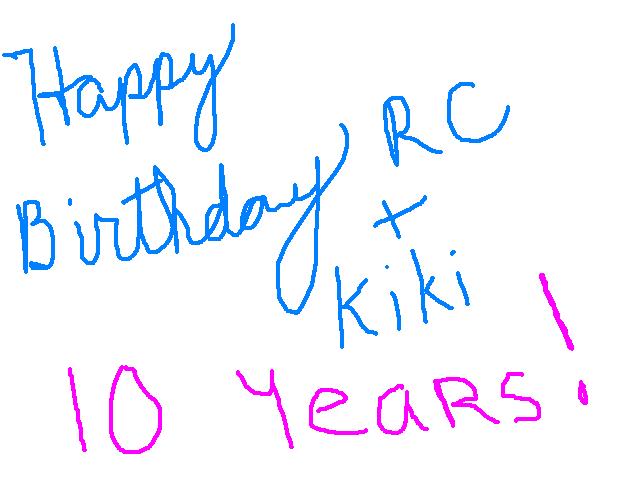 Happy
Birthday RC
+
Kiki
10 Years!